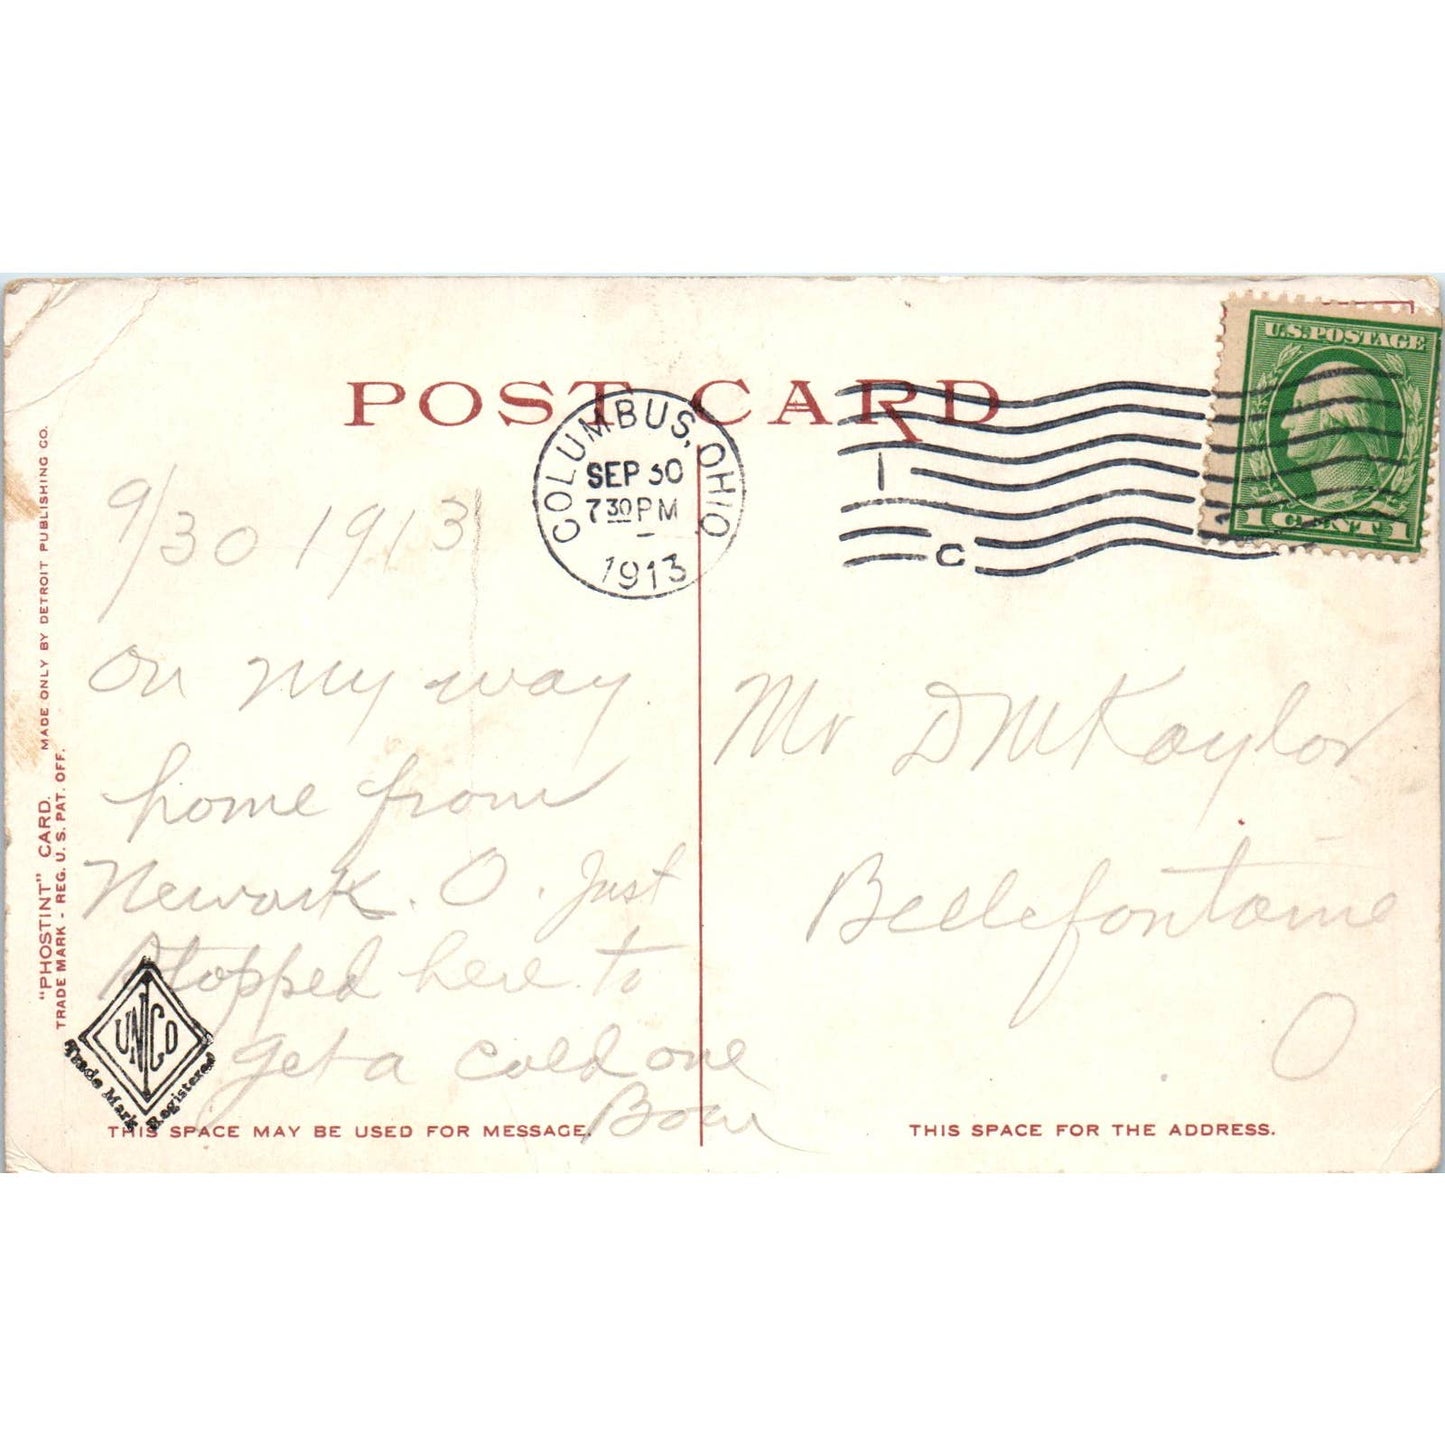 POST CARD
COLUMBUS, OHIO
SEP 30
7 30 PM
1913
1
C
U.S. POSTAGE
1 CENT 1
9/30 1913
On my way
home from
Newark. O. Just
stopped here to
get a cold one
Mr D M Kaylor
Bellefontaine
O
"PHOSTINT" CARD. MADE ONLY BY DETROIT PUBLISHING CO.
TRADE MARK - REG. U. S. PAT. OFF.
UNCO
Trade Mark Registered
THIS SPACE MAY BE USED FOR MESSAGE.
THIS SPACE FOR THE ADDRESS.